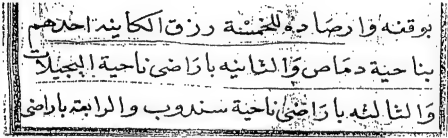 بوقفه وارصاده للخمسة رزق الكاينه احدهم
بناحية دماص والثانيه باراضى ناحية البجيلات
والثالثه باراضى ناحية سندوب والرابعه باراضى